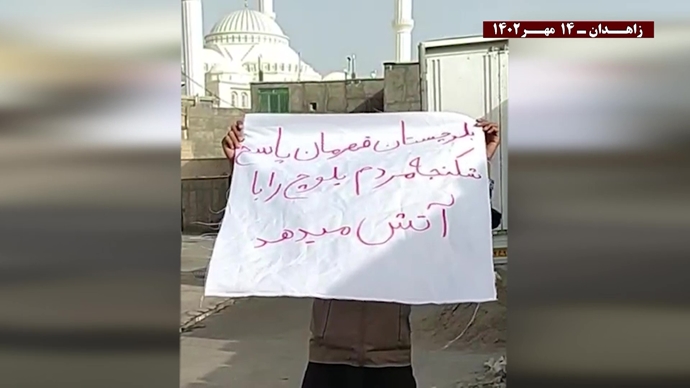 زاهـــدان ــ ۱۴ مهـــر ۱۴۰۲
بلوچستان قهرمان پاسخ
شکنجه مردم بلوچ را با
آتش میدهد